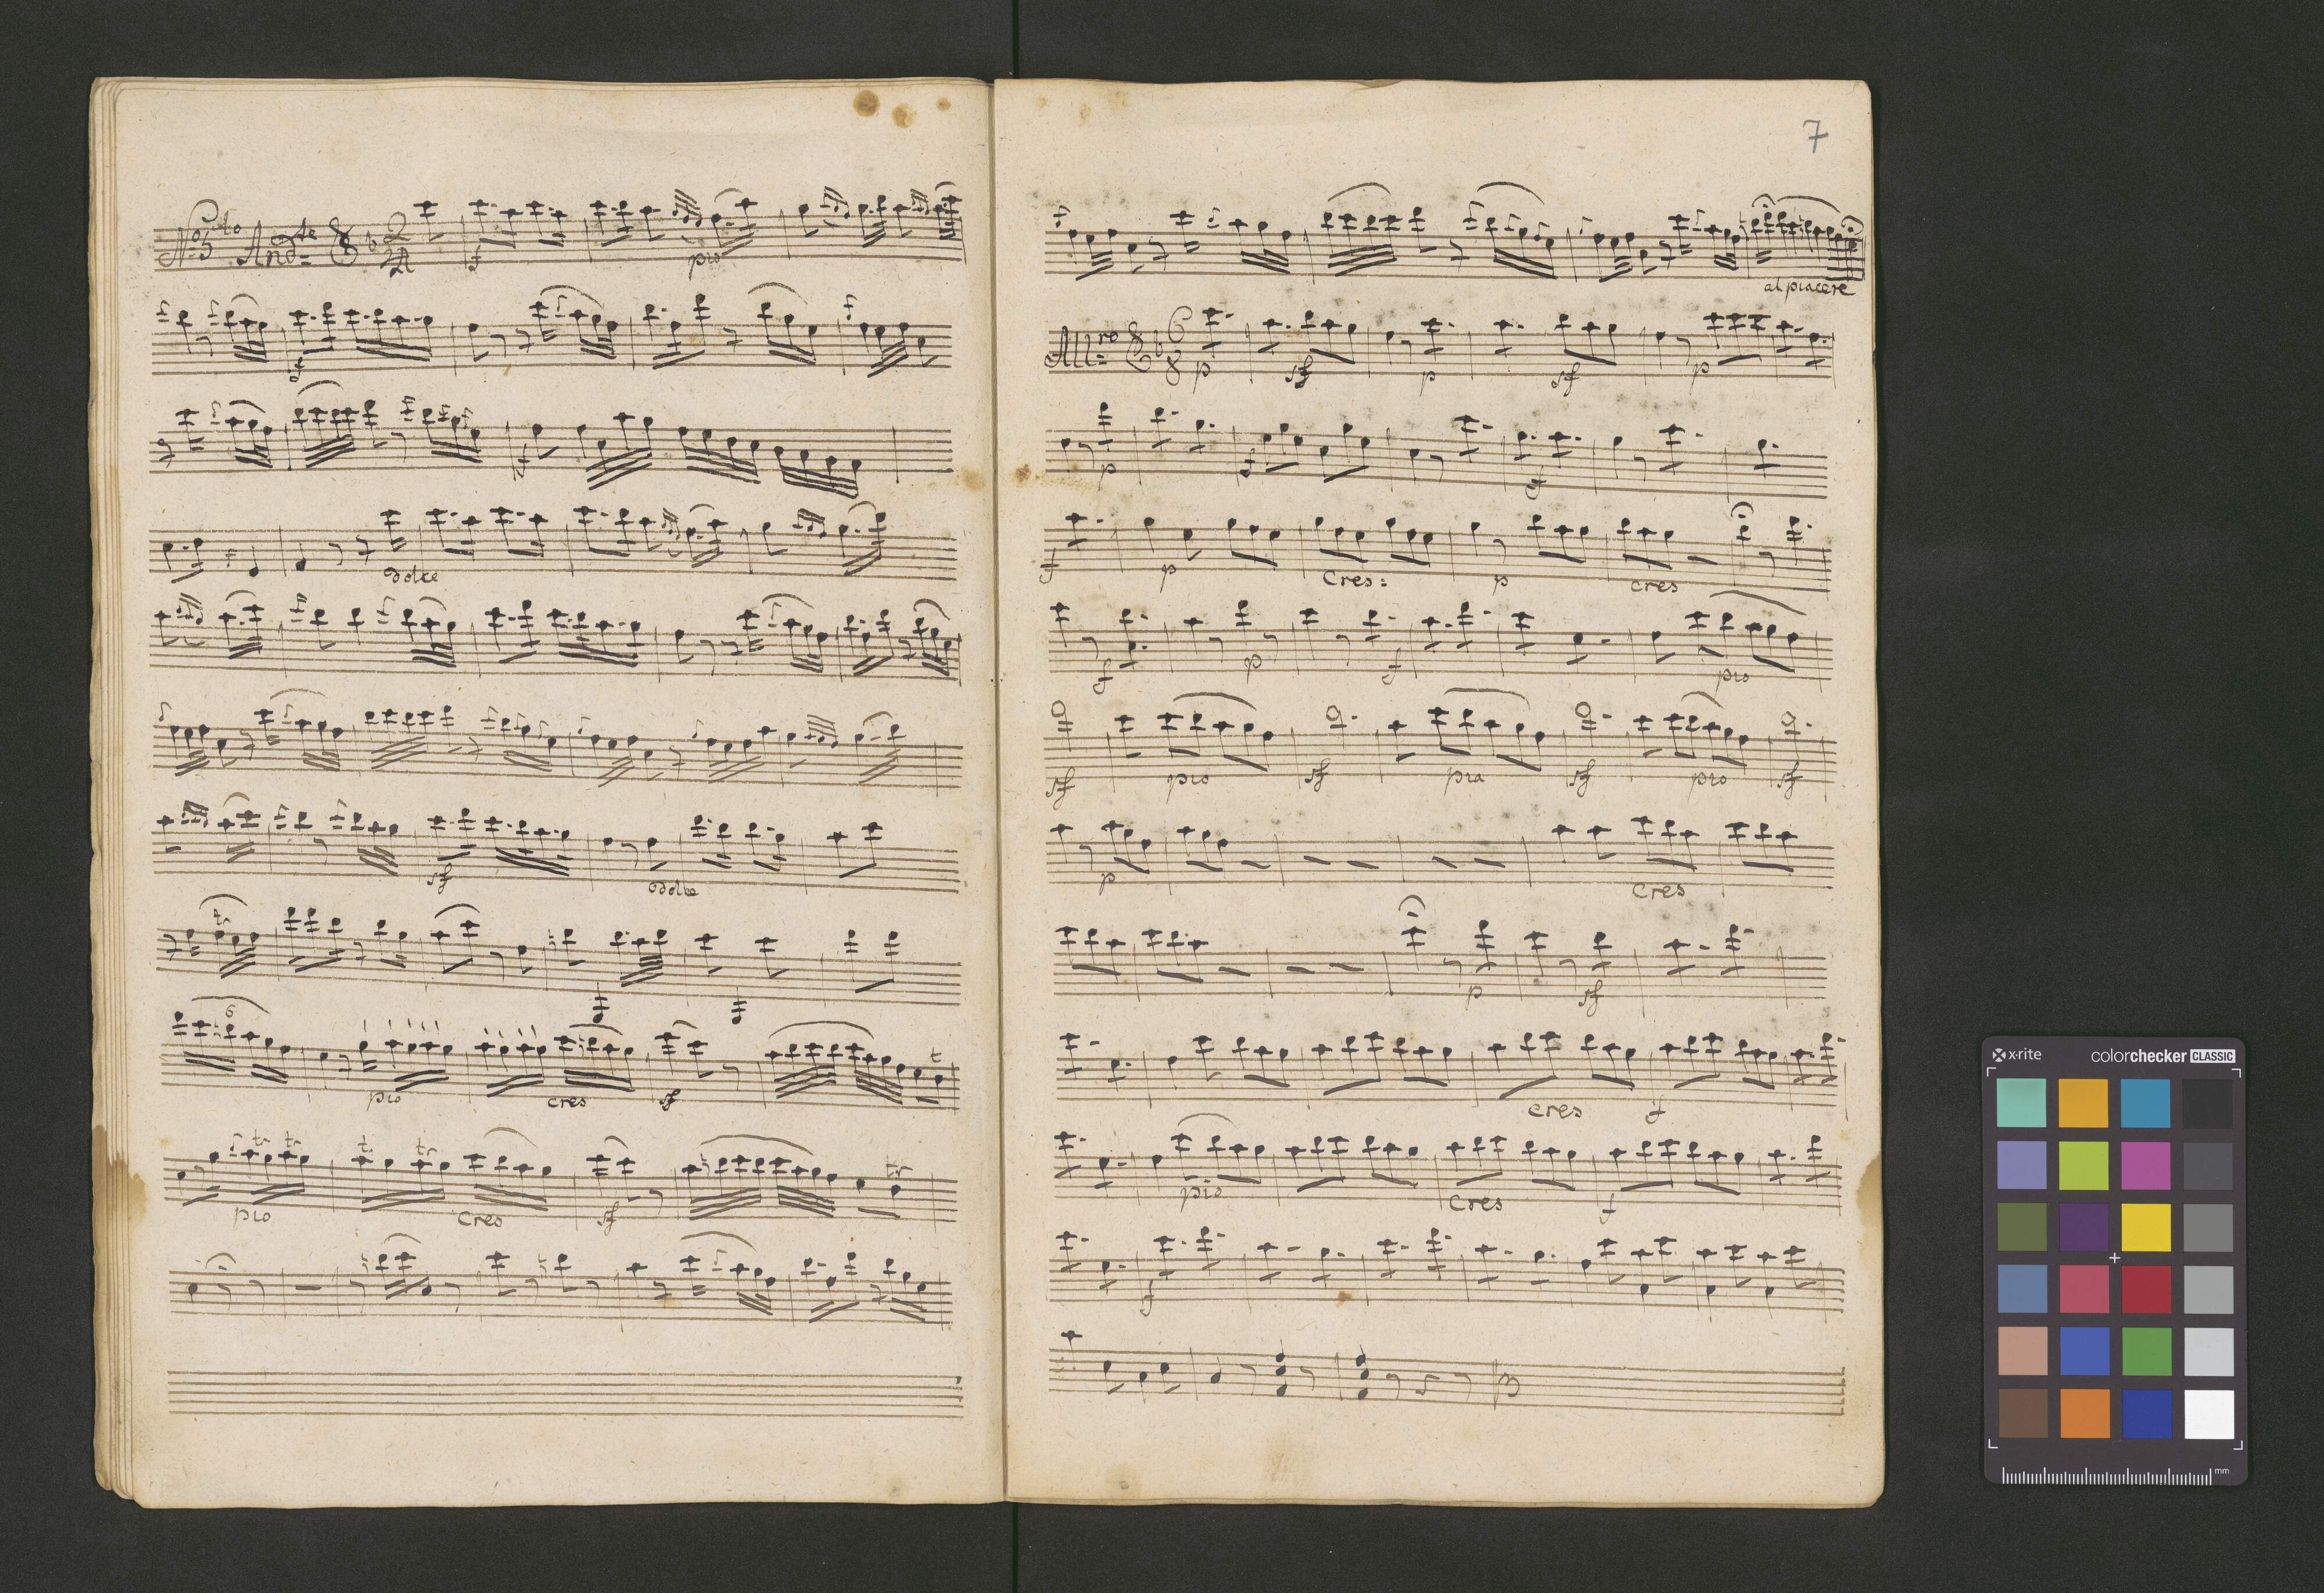 No 5to And.te 2/4 f pio
f
f
dolce
sf dolce
tr
6 pio cres sf t
pio tr tr t. tr Cres sf tr
7
al piacere
All.ro 6/8 p sf p sf p
p f f
f p Cres: p cres
f p f pio
sf pio sf pia sf pio sf
p Cres
p sf
cres f
pio Cres f
f
x·rite colorchecker CLASSIC
mm